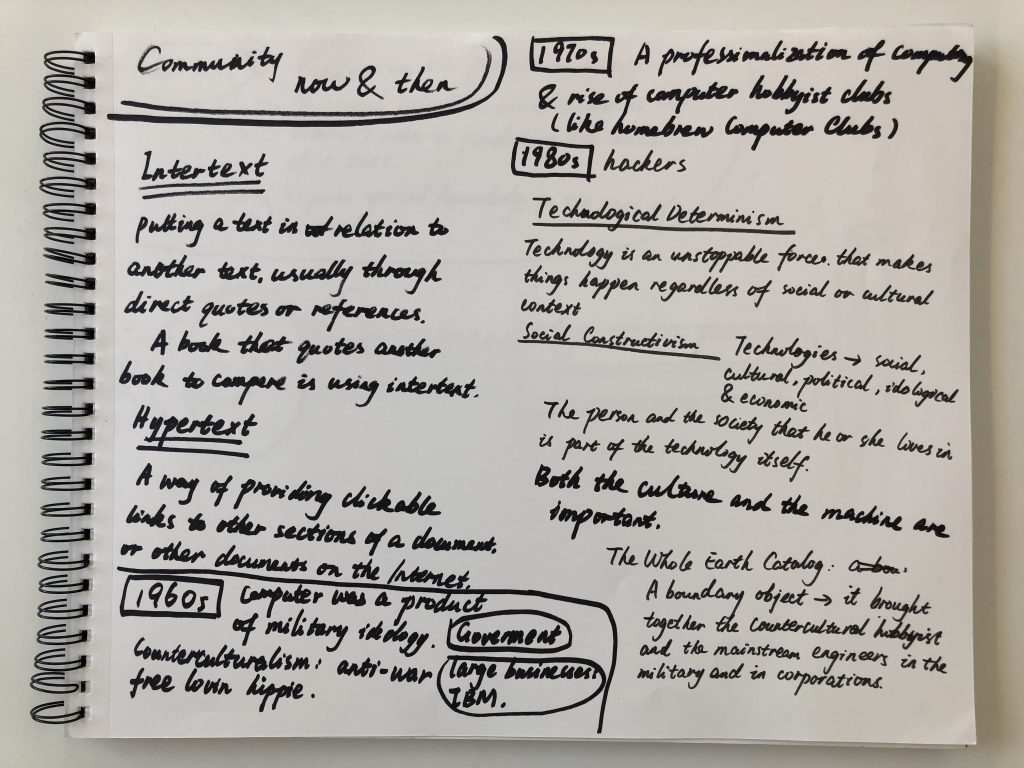 Community
now & then
Intertext
putting a text in relation to
another text, usually through
direct quotes or references.
A book that quotes another
book to compare is using intertext.
Hypertext
A way of providing clickable
links to other sections of a document,
or other documents on the Internet.
1960s Computer was a product
of military ideology. Goverment
Counterculturalism: anti-war
free lovin hippie.
large businesses
IBM.
1970s A professionalization of computing
& rise of computer hobbyist clubs
(like homebrew Computer Clubs)
1980s hackers
Technological Determinism
Technology is an unstoppable force. that makes
things happen regardless of social or cultural
context
Social Constructivism Technologies → social,
cultural, political, idological
& economic
The person and the society that he or she lives in
is part of the technology itself.
Both the culture and the machine are
important.
The Whole Earth Catalog:
A boundary object → it brought
together the countercultural hobbyist
and the mainstream engineers in the
military and in corporations.